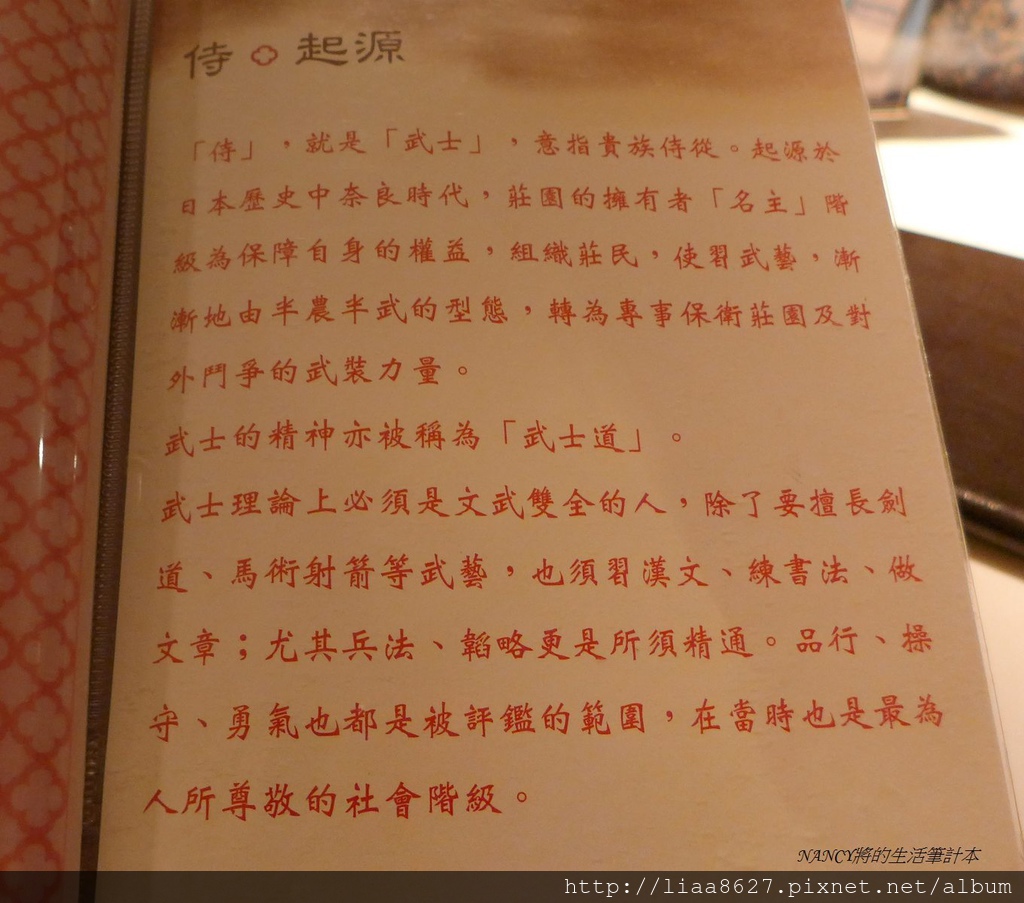 侍 起源
「侍」，就是「武士」，意指貴族侍從。起源於
日本歷史中奈良時代，莊園的擁有者「名主」階
級為保障自身的權益，組織莊民，使習武藝，漸
漸地由半農半武的型態，轉為專事保衛莊園及對
外鬥爭的武裝力量。
武士的精神亦被稱為「武士道」。
武士理論上必須是文武雙全的人，除了要擅長劍
道、馬術射箭等武藝，也須習漢文、練書法、做
文章；尤其兵法、韜略更是所須精通。品行、操
守、勇氣也都是被評鑑的範圍，在當時也是最為
人所尊敬的社會階級。
NANCY將的生活筆計本
http://liaa8627.pixnet.net/album